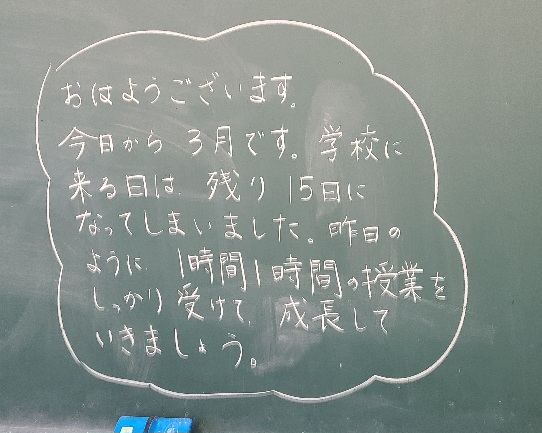 おはようございます。
今日から 3月です。学校に
来る日は 残り 15日に
なってしまいました。昨日の
ように 1時間1時間の授業を
しっかり受けて、成長して
いきましょう。